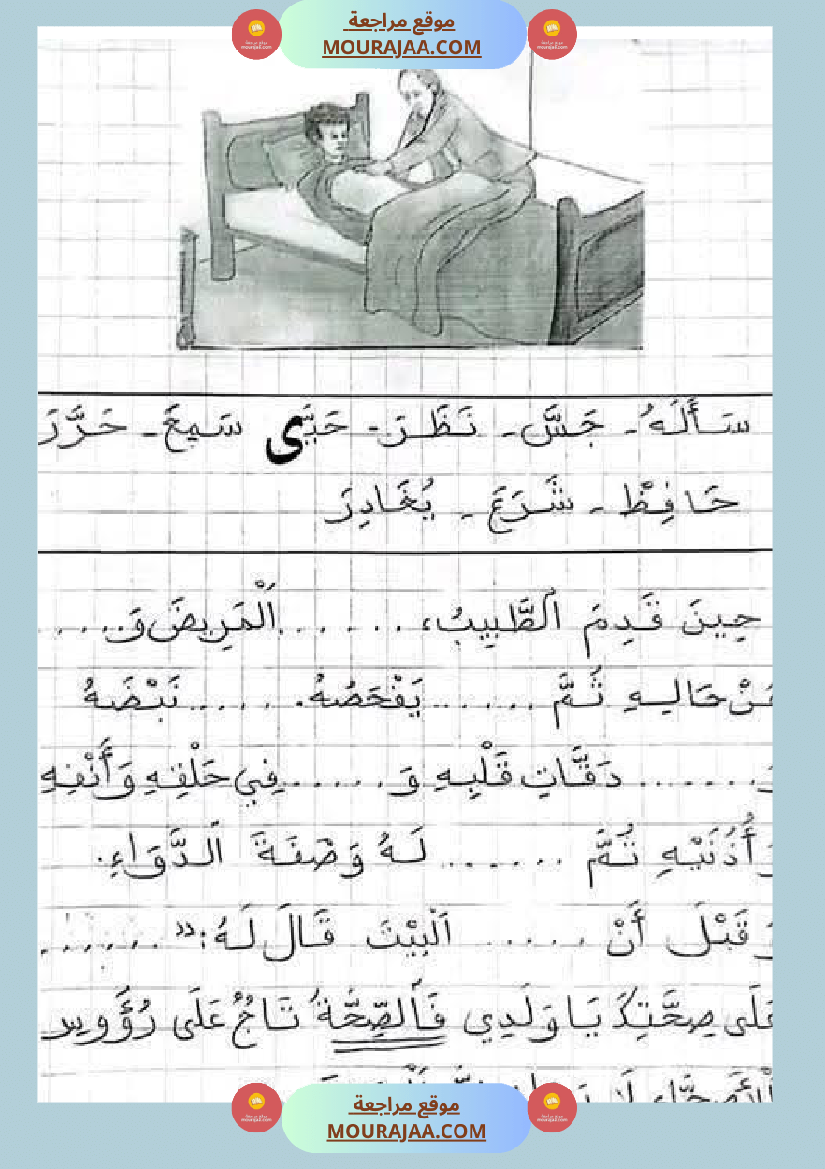 موقع مراجعة
MOURAJAA.COM
سَأَلَهُ - جَسَّ - نَظَرَ - حَيَّى سَمِعَ - حَرَّرَ
حَافِظْ - شَرَعَ - يُغَادِرَ
حِينَ قَدِمَ الطَّبِيبُ، ...... اَلْمَرِيضَ وَ.....
عَنْ حَالِهِ ثُمَّ ...... يَفْحَصُهُ. ...... نَبْضَهُ
وَ....... دَقَّاتِ قَلْبِهِ وَ...... فِي حَلْقِهِ وَأَنْفِهِ
وَأُذُنَيْهِ ثُمَّ ...... لَهُ وَصْفَةَ اَلدَّوَاءِ.
وَقَبْلَ أَنْ ..... اَلْبَيْتَ قَالَ لَهُ: " ......
عَلَى صِحَّتِكَ يَا وَلَدِي فَالصِّحَّةُ تَاجٌ عَلَى رُؤُوسِ
اَلْأَصِحَّاءِ لَا
موقع مراجعة
MOURAJAA.COM